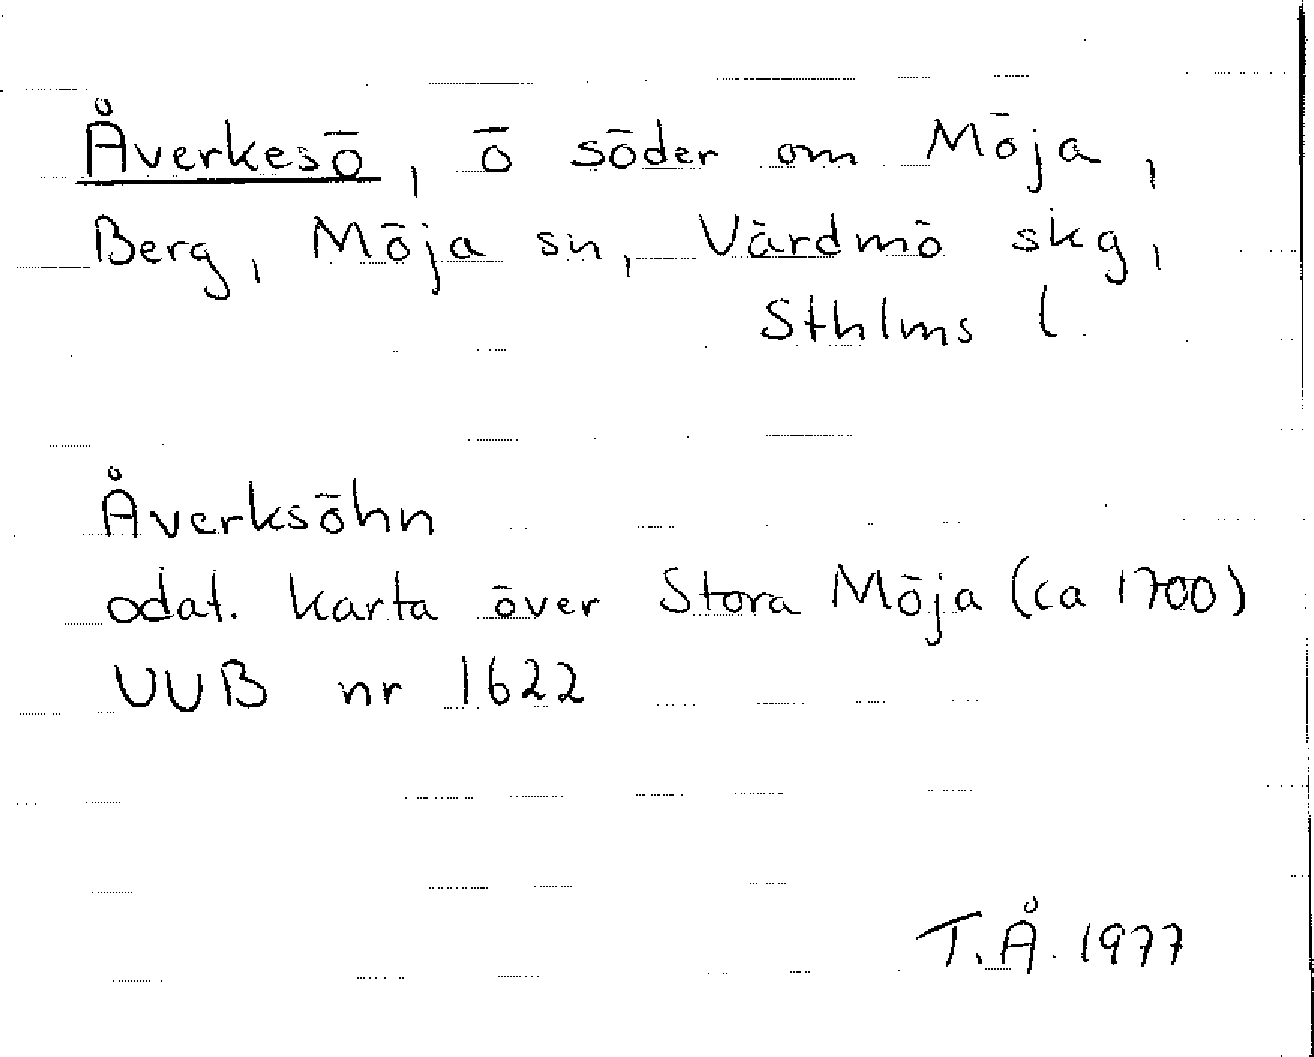 Åverkesö, ö söder om Möja,
Berg, Möja sn, Värdmö skg,
Sthlms l.
Åverksöhn
odat. karta över Stora Möja (ca 1700)
UUB nr 1622
T.Å. 1977